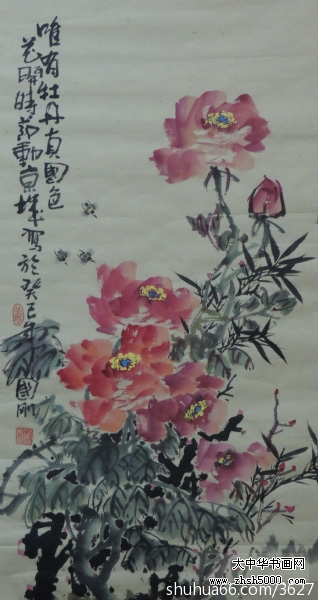 唯有牡丹真國色
花開時節動京城寫於癸巳年
國剛
大中华书画网
www.zhsh5000.com
shuhua66.com/3627